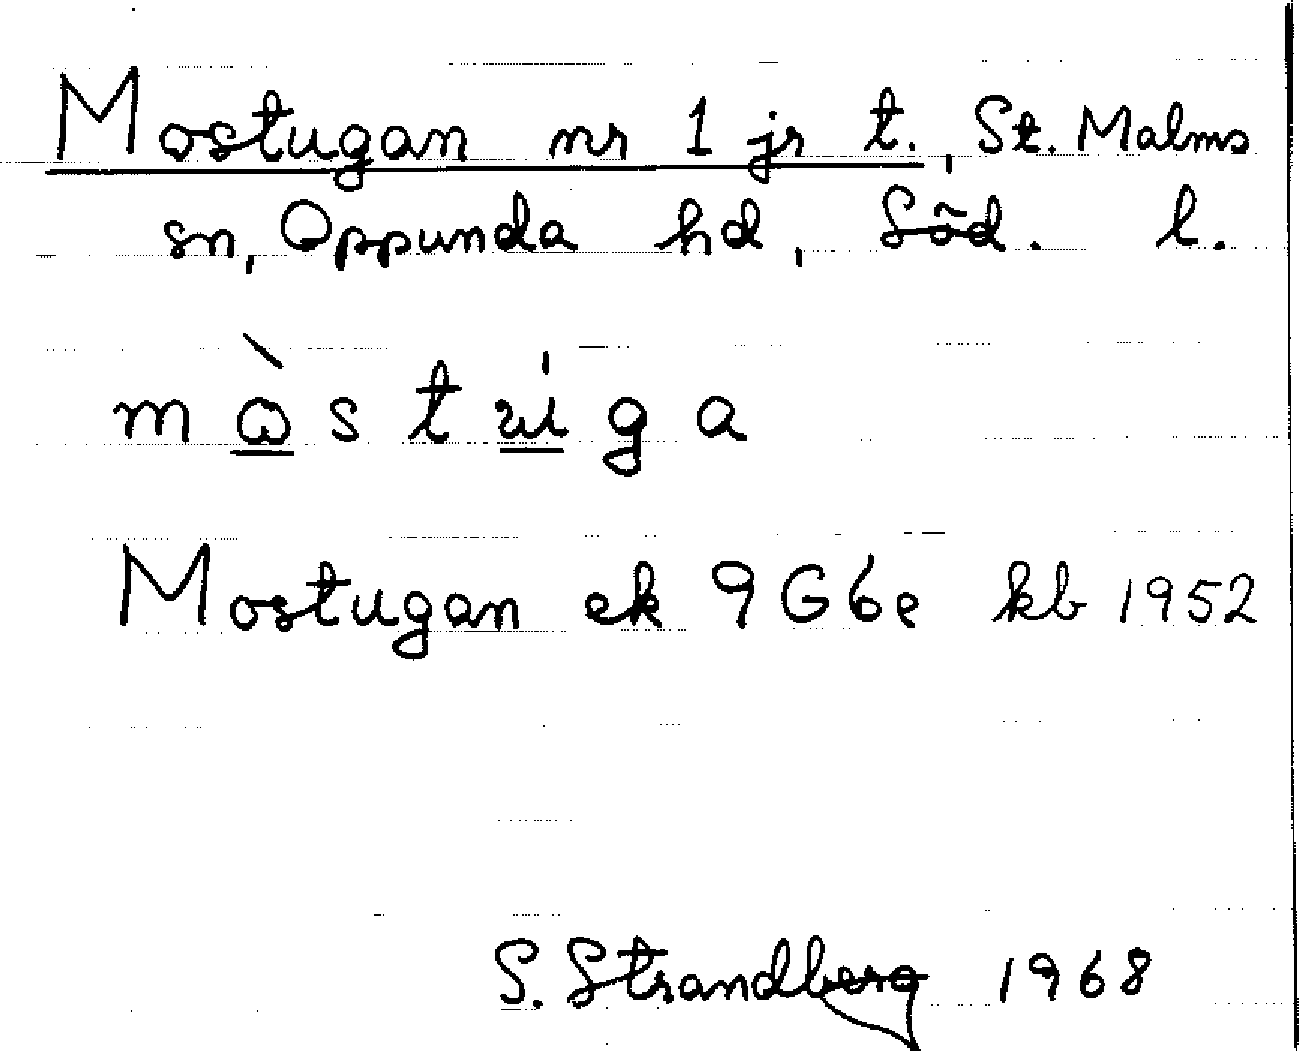 Mostugan nr 1 jr t., St. Malms
sn, Oppunda hd, Söd. l.
Mostugan ek 9G6e kb 1952
S. Strandberg 1968